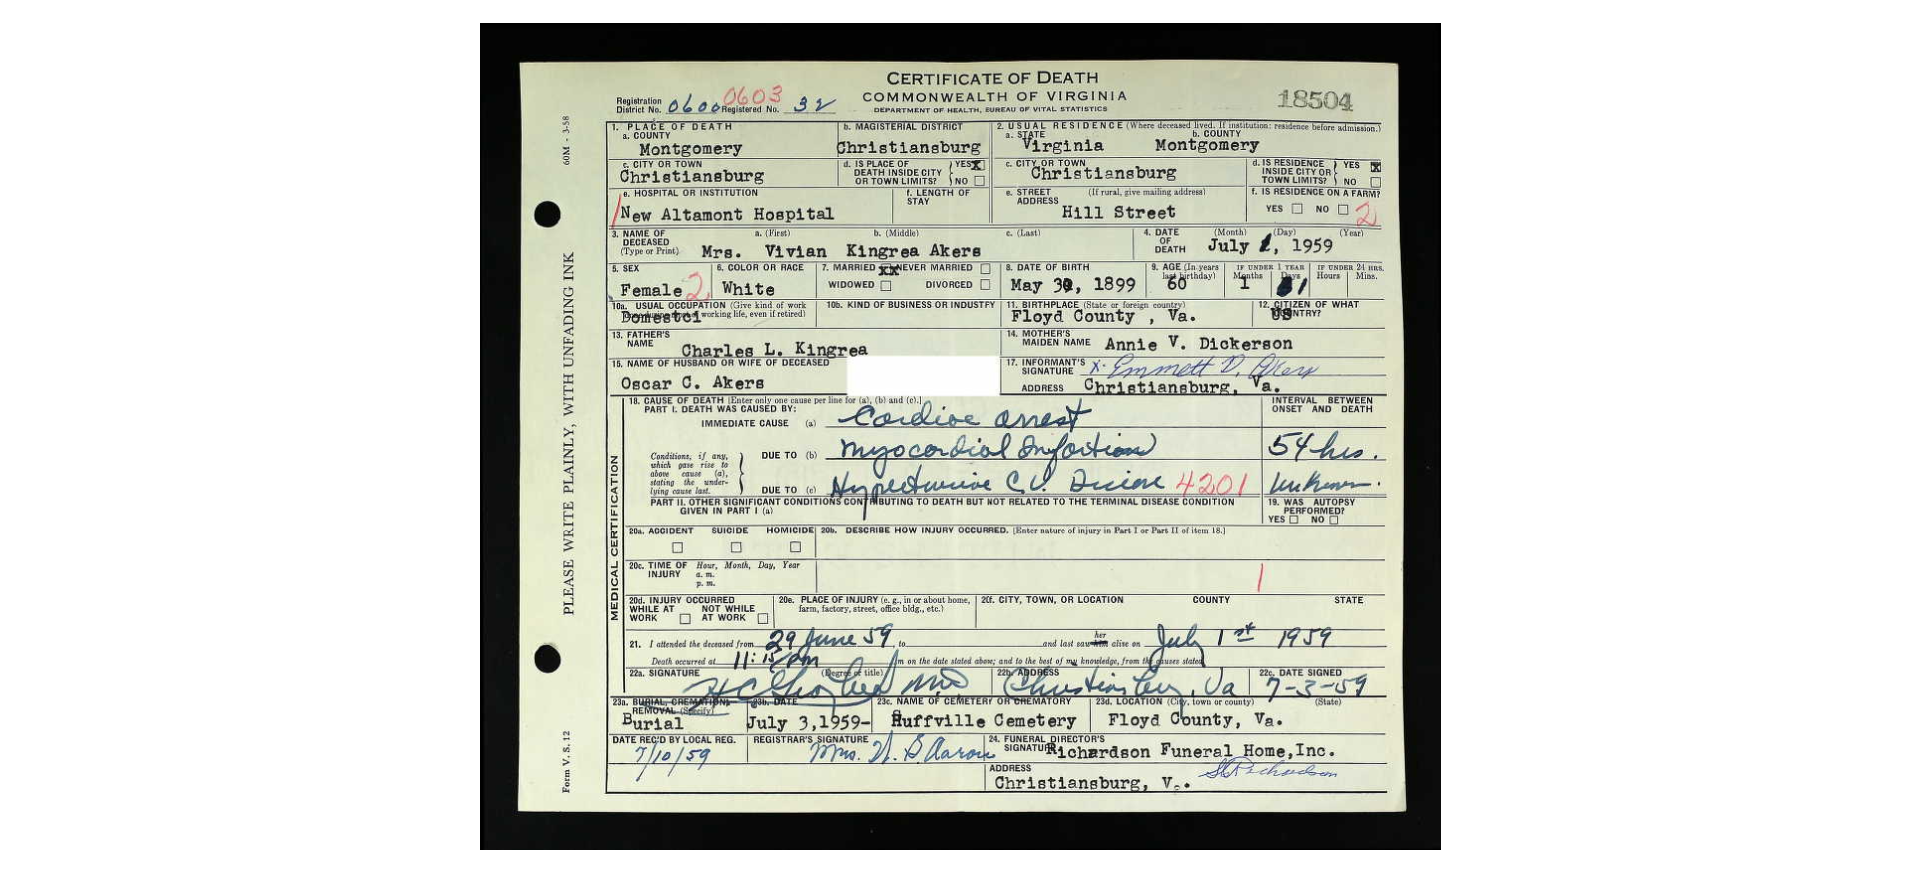 CERTIFICATE OF DEATH
COMMONWEALTH OF VIRGINIA
DEPARTMENT OF HEALTH, BUREAU OF VITAL STATISTICS
18504
Registration District No. 0600 0603 Registered No. 32
60M - 3-58
PLEASE WRITE PLAINLY, WITH UNFADING INK
Form V. S. 12
1. PLACE OF DEATH
a. COUNTY
Montgomery
b. MAGISTERIAL DISTRICT
Christiansburg
2. USUAL RESIDENCE (Where deceased lived. If institution: residence before admission.)
a. STATE
Virginia
b. COUNTY
Montgomery
c. CITY OR TOWN
Christiansburg
d. IS PLACE OF DEATH INSIDE CITY OR TOWN LIMITS? YES X NO
c. CITY OR TOWN
Christiansburg
d. IS RESIDENCE INSIDE CITY OR TOWN LIMITS? YES X NO
e. HOSPITAL OR INSTITUTION
1 New Altamont Hospital
f. LENGTH OF STAY
e. STREET ADDRESS (If rural, give mailing address)
Hill Street
f. IS RESIDENCE ON A FARM?
YES NO 2
3. NAME OF DECEASED (Type or Print)
a. (First) b. (Middle) c. (Last)
Mrs. Vivian Kingrea Akers
4. DATE OF DEATH (Month) (Day) (Year)
July 1, 1959
5. SEX
Female 2
6. COLOR OR RACE
White
7. MARRIED XX NEVER MARRIED
WIDOWED DIVORCED
8. DATE OF BIRTH
May 30, 1899
9. AGE (In years last birthday)
60
IF UNDER 1 YEAR
Months Days
1 1
IF UNDER 24 HRS.
Hours Mins.
10a. USUAL OCCUPATION (Give kind of work done during most of working life, even if retired)
Domestci
10b. KIND OF BUSINESS OR INDUSTRY
11. BIRTHPLACE (State or foreign country)
Floyd County , Va.
12. CITIZEN OF WHAT COUNTRY?
US
13. FATHER'S NAME
Charles L. Kingrea
14. MOTHER'S MAIDEN NAME
Annie V. Dickerson
15. NAME OF HUSBAND OR WIFE OF DECEASED
Oscar C. Akers
17. INFORMANT'S SIGNATURE x. Emmett D. Akers
ADDRESS Christiansburg, Va.
MEDICAL CERTIFICATION
18. CAUSE OF DEATH [Enter only one cause per line for (a), (b) and (c).]
INTERVAL BETWEEN ONSET AND DEATH
PART I. DEATH WAS CAUSED BY:
IMMEDIATE CAUSE (a) Cardiac arrest
Conditions, if any, which gave rise to above cause (a), stating the underlying cause last.
DUE TO (b) Myocardial Infarction 54 hrs.
DUE TO (c) Hypertensive C.V. Disease 4201 Unknown.
PART II. OTHER SIGNIFICANT CONDITIONS CONTRIBUTING TO DEATH BUT NOT RELATED TO THE TERMINAL DISEASE CONDITION GIVEN IN PART I (a)
19. WAS AUTOPSY PERFORMED?
YES NO
20a. ACCIDENT SUICIDE HOMICIDE
20b. DESCRIBE HOW INJURY OCCURRED. [Enter nature of injury in Part I or Part II of item 18.]
20c. TIME OF INJURY Hour, Month, Day, Year
a. m.
p. m.
1
20d. INJURY OCCURRED
WHILE AT WORK NOT WHILE AT WORK
20e. PLACE OF INJURY (e. g., in or about home, farm, factory, street, office bldg., etc.)
20f. CITY, TOWN, OR LOCATION COUNTY STATE
21. I attended the deceased from 29 June 59, to and last saw him her alive on July 1st 1959
Death occurred at 11:15 pm m on the date stated above; and to the best of my knowledge, from the causes stated
22a. SIGNATURE (Degree or title)
MD
22b. ADDRESS
Christiansburg, Va
22c. DATE SIGNED
7-3-59
23a. BURIAL, CREMATION, REMOVAL (Specify)
Burial
23b. DATE
July 3,1959-
23c. NAME OF CEMETERY OR CREMATORY
Huffville Cemetery
23d. LOCATION (City, town or county) (State)
Floyd County, Va.
DATE REC'D BY LOCAL REG.
7/10/59
REGISTRAR'S SIGNATURE
Mrs. W. S. Aaron
24. FUNERAL DIRECTOR'S SIGNATURE
Richardson Funeral Home,Inc.
Richardson
ADDRESS
Christiansburg, Va.